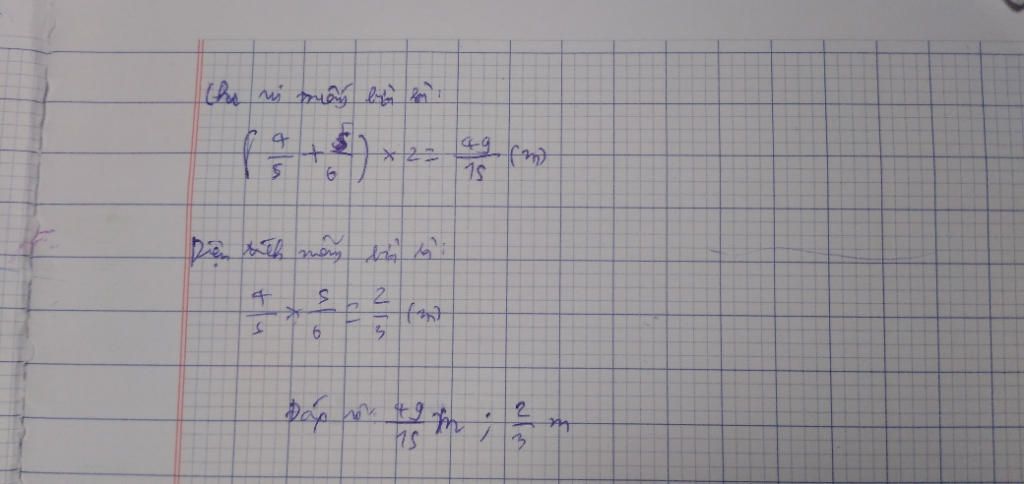 Chu vi mỗi bìa là:
( 4/5 + 5/6 ) × 2 = 49/15 (m)
Diện tích mỗi bìa là:
4/5 × 5/6 = 2/3 (m)
Đáp số: 49/15 m ; 2/3 m